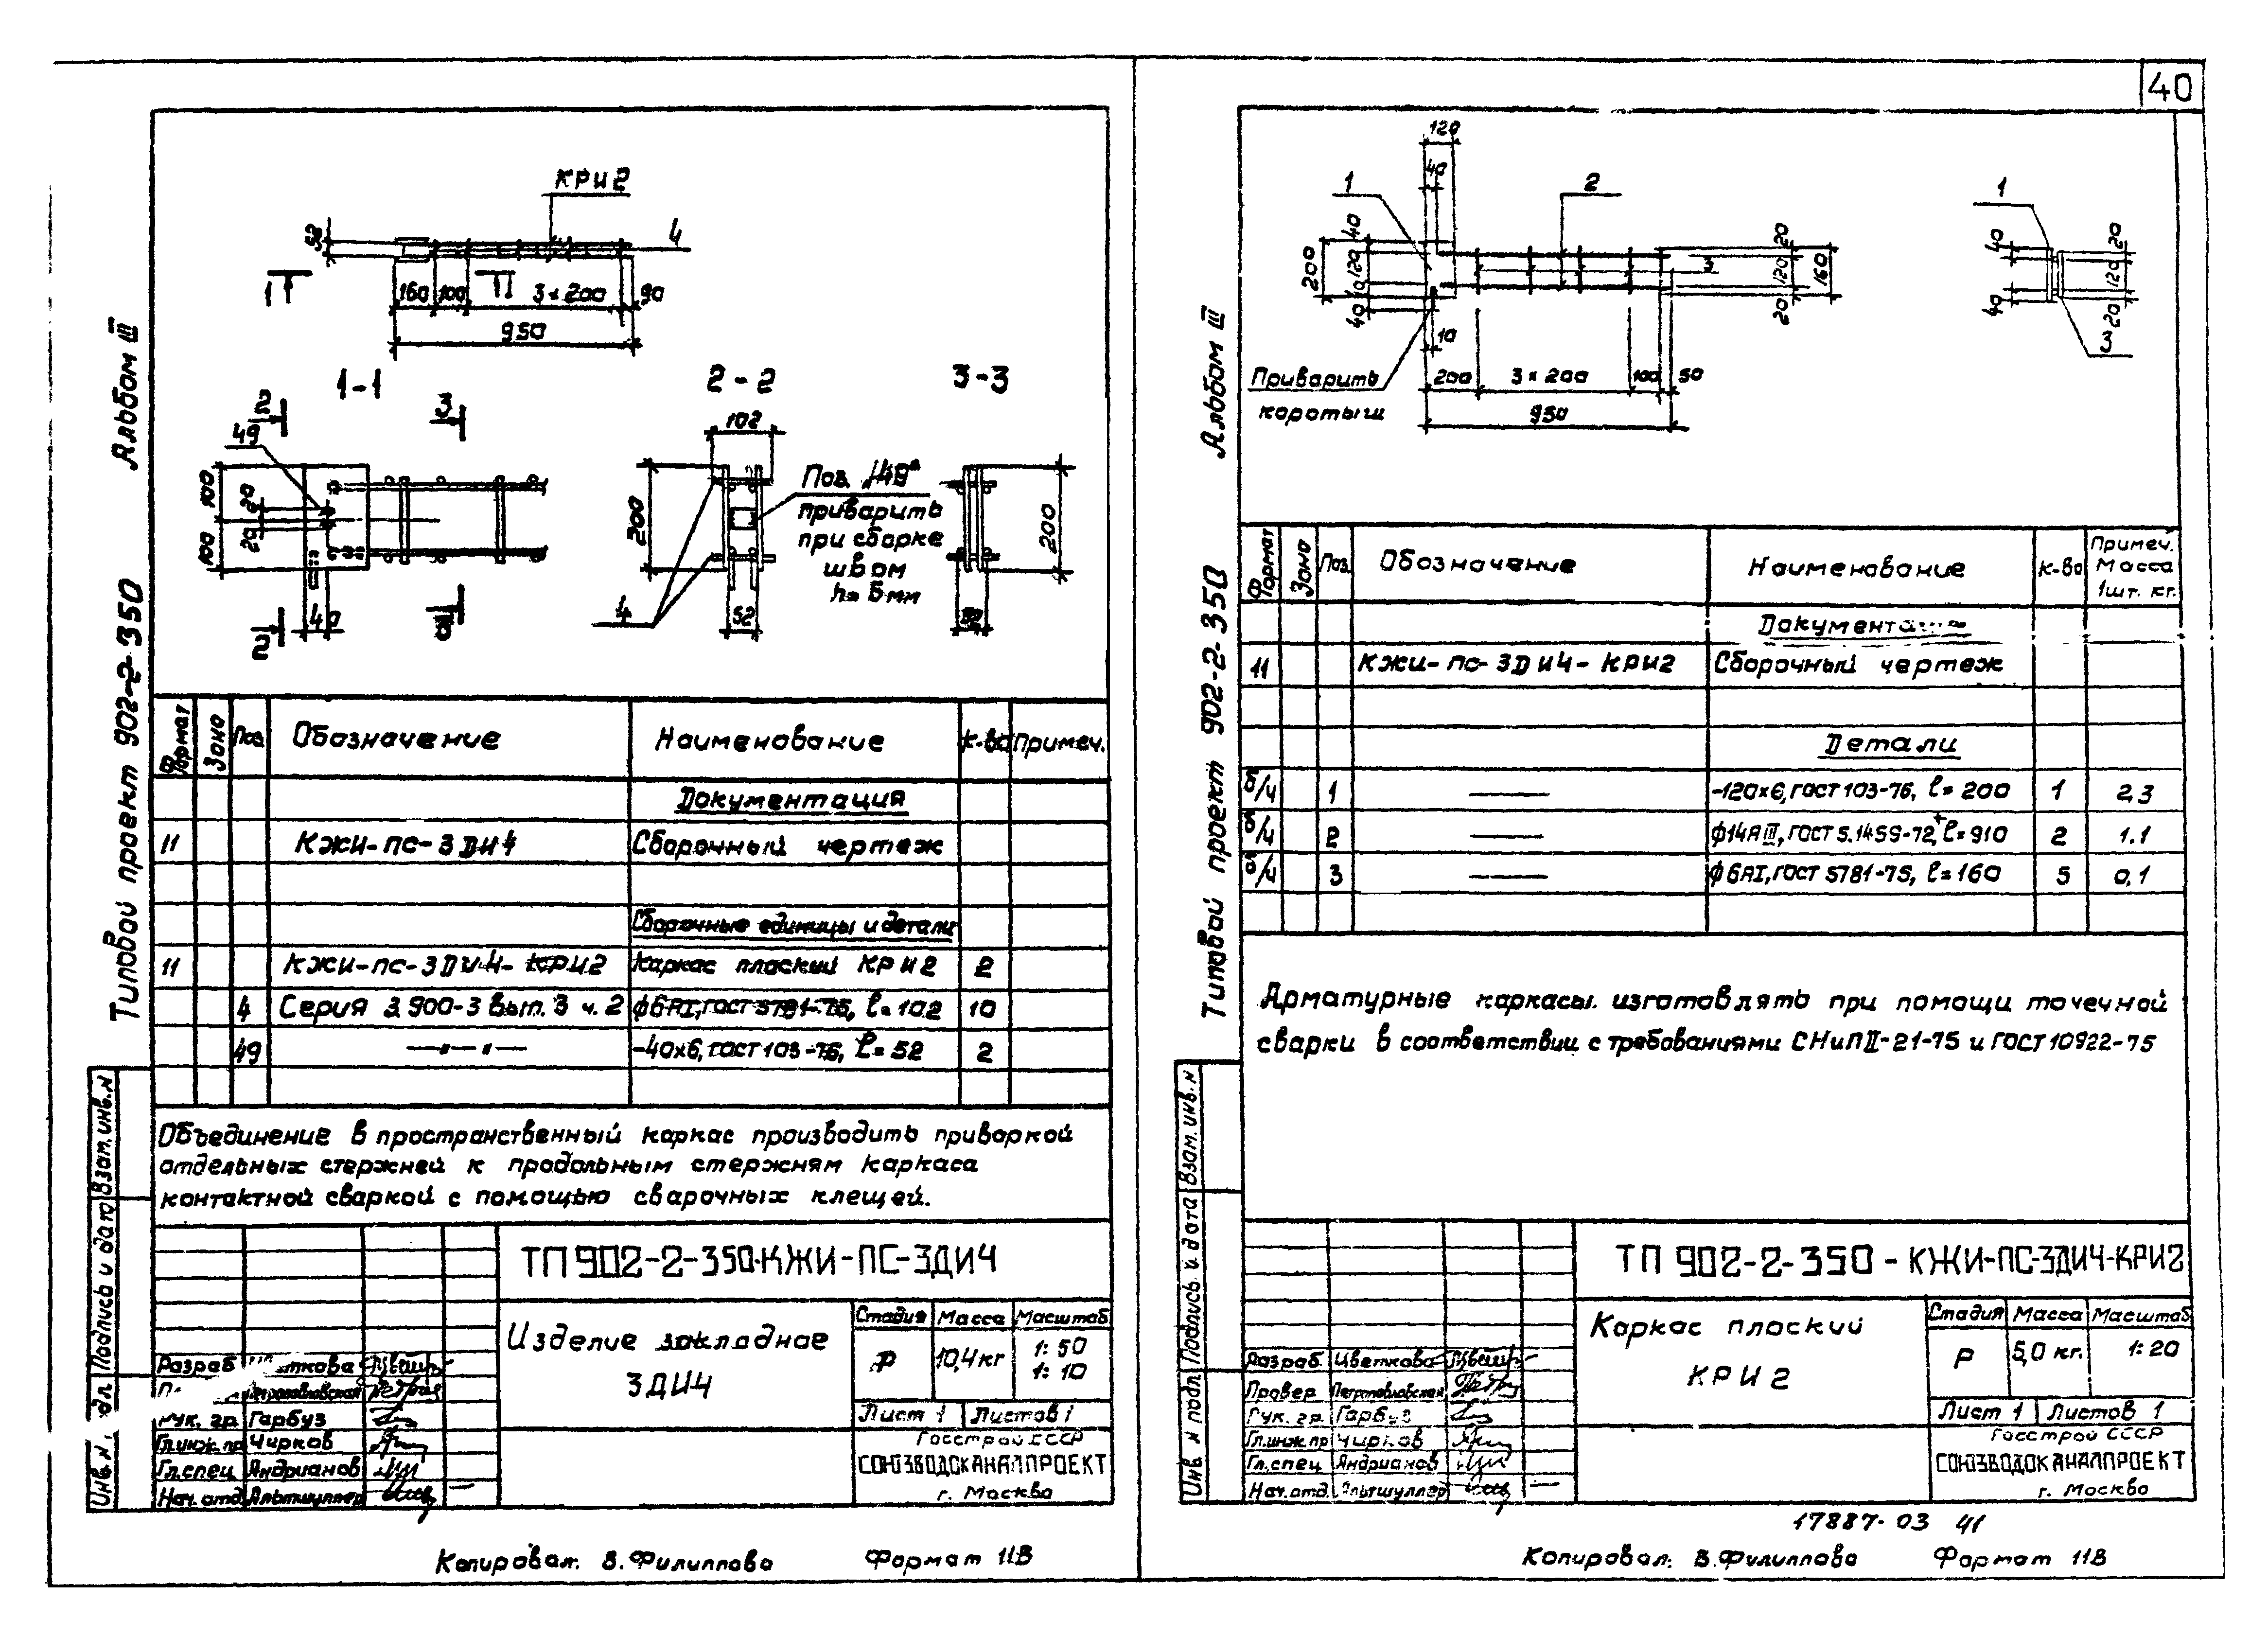 40
Альбом III
Типовой проект 902-2-350
КРИ2
4
52
1
160 100 3×200 90
950
1-1
2-2
3-3
2
3
49
100
100
20
20
40
2
3
102
200
Поз. „49"
приварить
при сборке
швом
h=5мм
4
52
200
Формат
Зона
Поз.
Обозначение
Наименование
К-во
Примеч.
Документация
11 КЖИ-ПС-3ДИ4 Сборочный чертеж
Сборочные единицы и детали
11 КЖИ-ПС-3ДИ4-КРИ2 Каркас плоский КРИ2 2
4 Серия 3.900-3 вып. 3 ч. 2 ф6АI, ГОСТ 5781-75, ℓ=102 10
49 —„— -40×6, ГОСТ 103-76, ℓ=52 2
Объединение в пространственный каркас производить приваркой
отдельных стержней к продольным стержням каркаса
контактной сваркой с помощью сварочных клещей.
Взам. инв. N
Подпись и дата
Инв. N
ТП 902-2-350-КЖИ-ПС-3ДИ4
Изделие закладное
3ДИ4
Стадия Масса Масштаб
Р 10,4кг 1:50
1:10
Лист 1 Листов 1
Госстрой СССР
СОЮЗВОДОКАНАЛПРОЕКТ
г. Москва
Разраб.
Петропавловская
Рук. гр. Гарбуз
Гл.инж.пр Чирков
Гл.спец Андрианов
Нач.отд. Альтшуллер
Копировал: В.Филиппова Формат 11В
Альбом III
Типовой проект 902-2-350
120
40
1
2
3
200
40
120
40
10
20
120
20
160
Приварить
коротыш
200 3×200 100 50
950
1
40
40
20
120
20
3
Формат
Зона
Поз.
Обозначение
Наименование
К-во
Примеч.
Масса
1шт. кг.
11 КЖИ-ПС-3ДИ4-КРИ2 Сборочный чертеж
Детали
б/ч 1 — -120×6, ГОСТ 103-76, ℓ=200 1 2,3
б/ч 2 — ф14АIII, ГОСТ 5.1459-72, ℓ=910 2 1.1
б/ч 3 — ф6АI, ГОСТ 5781-75, ℓ=160 5 0,1
Арматурные каркасы изготовлять при помощи точечной
сварки в соответствии с требованиями СНиП II-21-75 и ГОСТ 10922-75
Взам. инв. N
Подпись и дата
Инв. N подл.
ТП 902-2-350-КЖИ-ПС-3ДИ4-КРИ2
Каркас плоский
КРИ2
Стадия Масса Масштаб
Р 5,0 кг. 1:20
Лист 1 Листов 1
Госстрой СССР
СОЮЗВОДОКАНАЛПРОЕКТ
г. Москва
Разраб. Цветкова
Провер. Петропавловская
Рук. гр. Гарбуз
Гл.инж.пр Чирков
Гл.спец Андрианов
Нач.отд. Альтшуллер
17887-03 41
Копировал: В.Филиппова Формат 11В